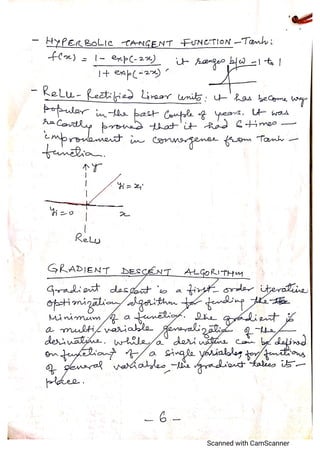 - HYPERBOLIC TANGENT FUNCTION - Tanh:
f(x) = 1- exp(-2x) it ranges b/w -1 to 1
1+ exp(-2x)
- ReLu - Rectified Linear units: it has become very
popular in the past couple of years. It was
recently proved that it had 6 times
improvement in convergence from Tanh -
function.
Y
Yi = xi
Yi = 0
x
ReLu
GRADIENT DESCENT ALGORITHM
Gradient descent is a first-order iterative
optimization algorithm for finding the
minimum of a function. The gradient is
a multi variable generalization of the
derivative. while a derivative can be defined
on functions of a single variables, for functions
of general variables, the gradient takes its
place.
- 6 -
Scanned with CamScanner